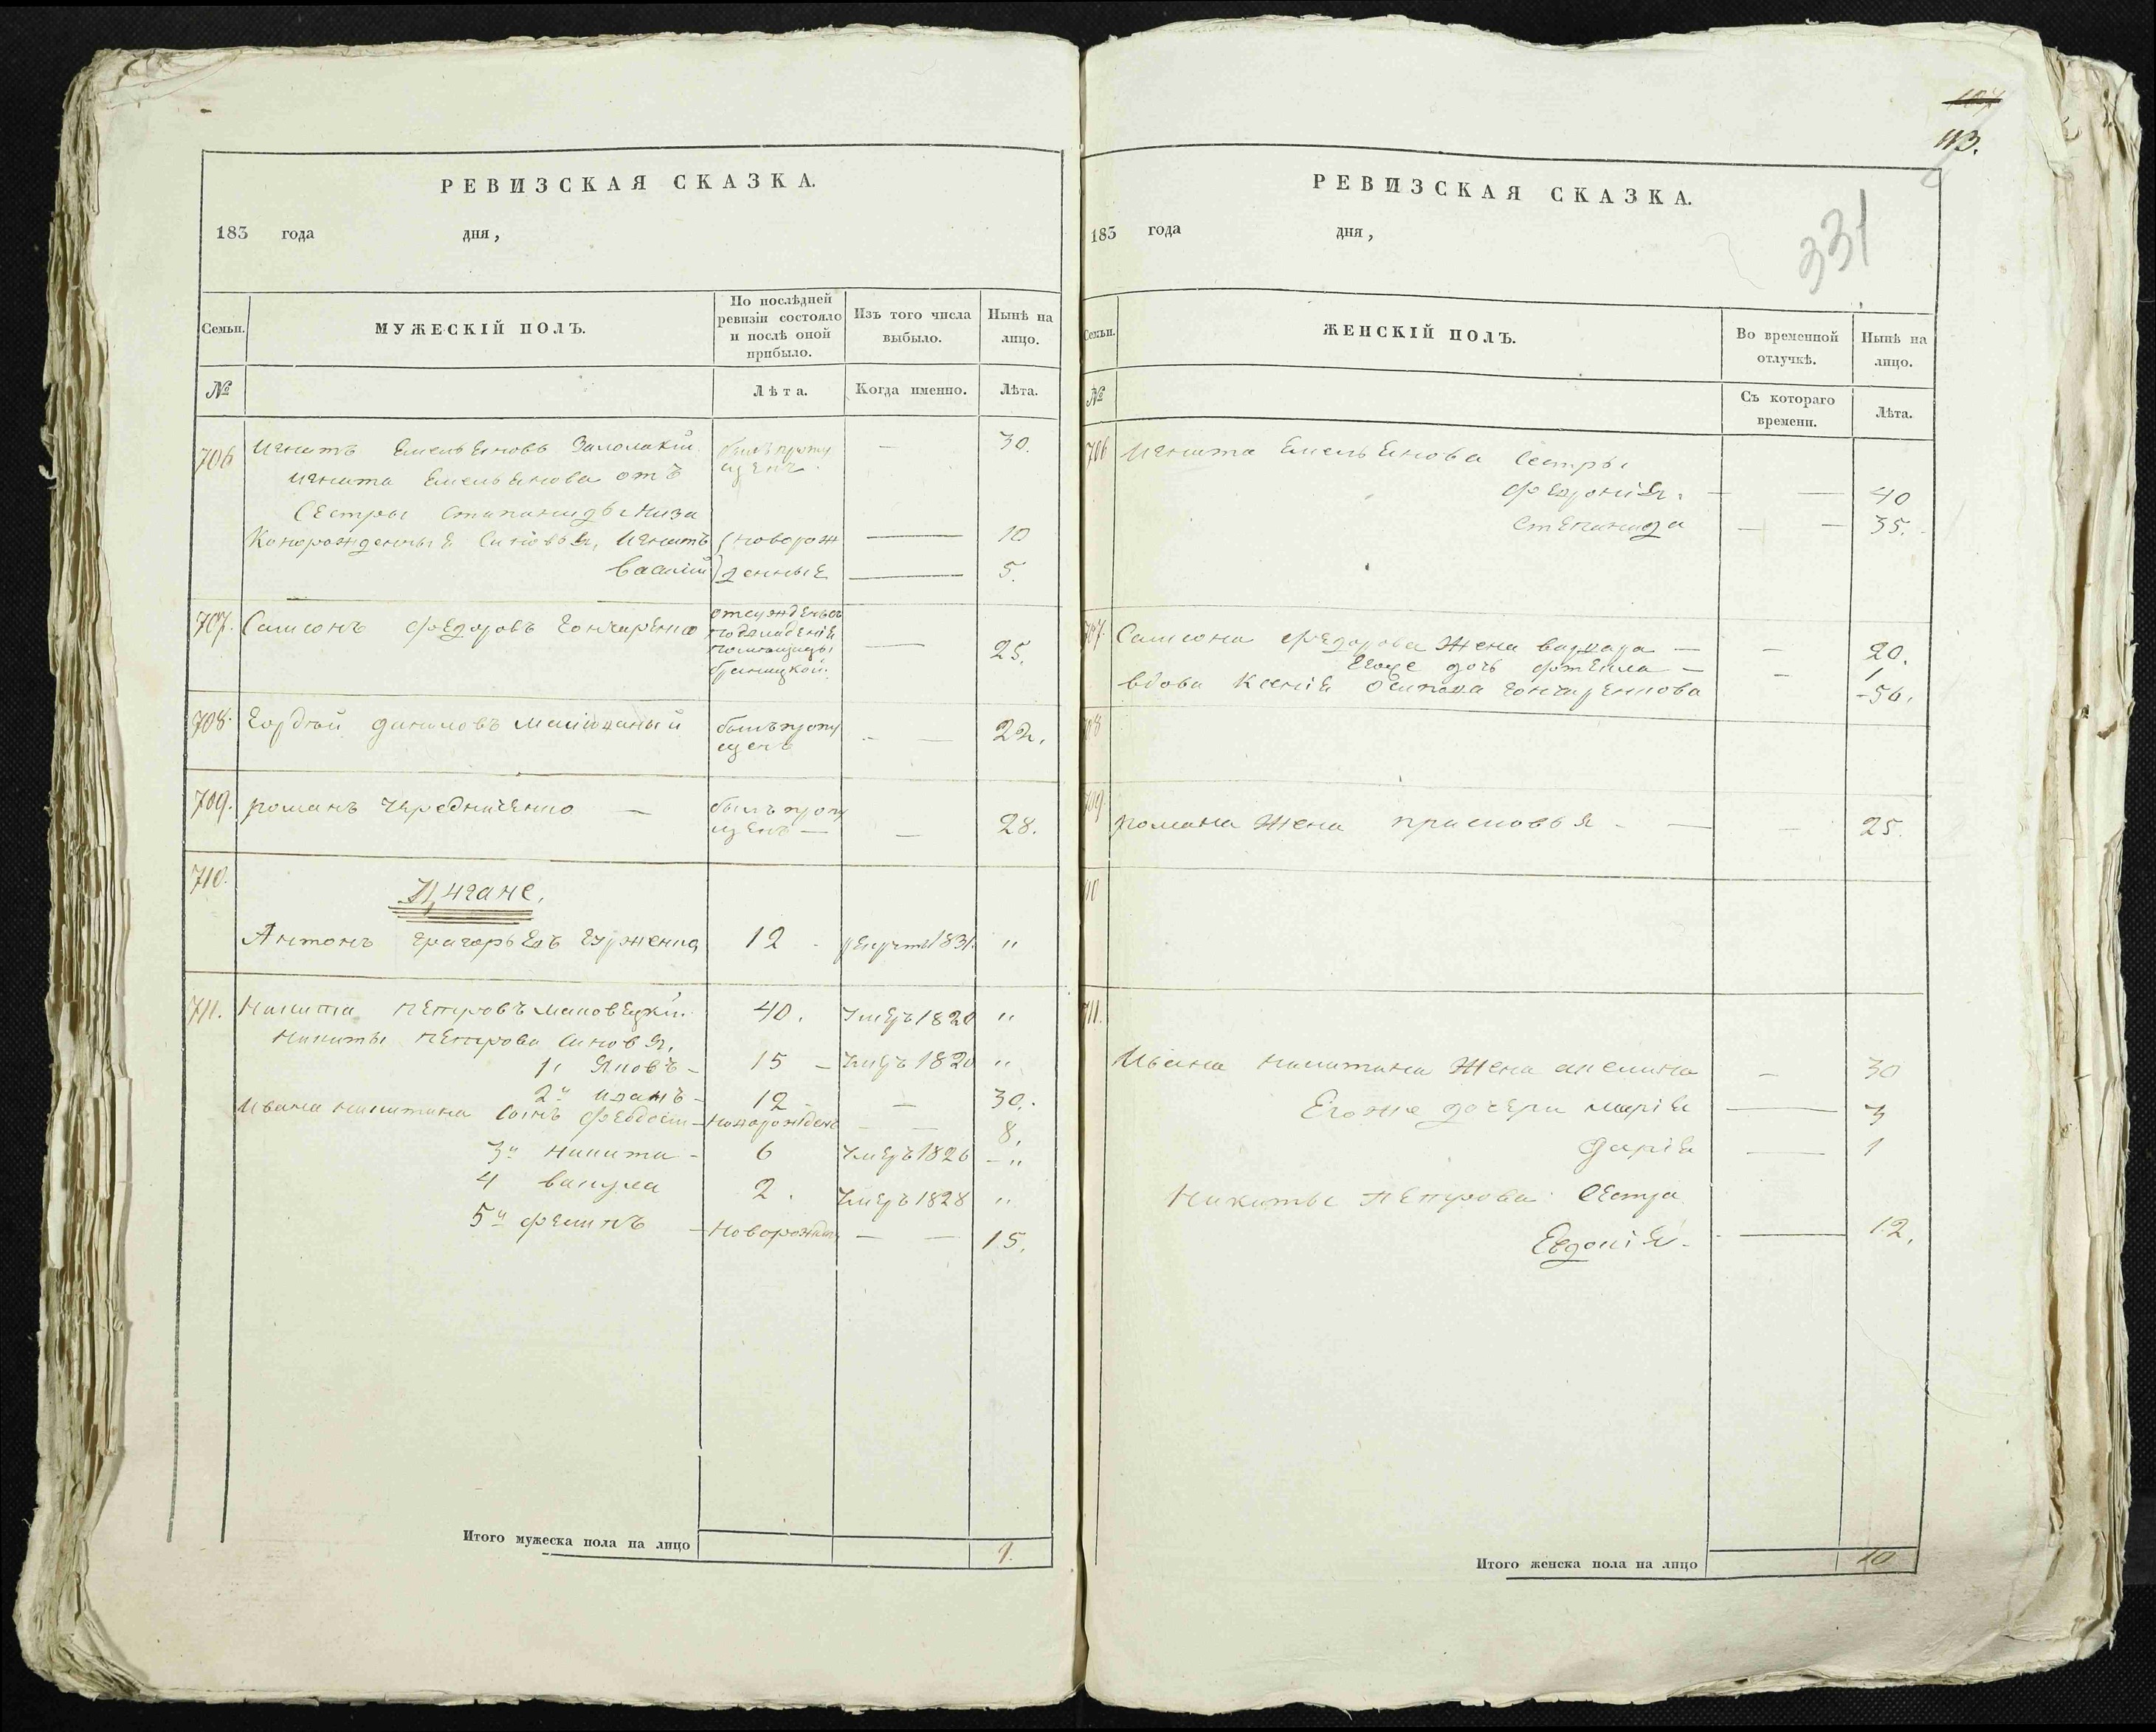 РЕВИЗСКАЯ СКАЗКА.
183 года дня,
Семьи. МУЖЕСКІЙ ПОЛЪ. По послѣдней ревизіи состояло и послѣ оной прибыло. Изъ того числа выбыло. Нынѣ на лицо.
№ Лѣта. Когда именно. Лѣта.
706 Игнатъ Емельяновъ былъ пропу 30.
Игната Емельянова отъ щенъ
Сестры Степаниды Неза
Конорожденные Сыновья, Игнатъ новорож 10
Василій денные 5.
707. Самсонъ Федоровъ Гончаренко 25.
708. Гордѣй Даниловъ былъ пропу щенъ 22.
709. Романъ Чередниченко — былъ пропу щенъ — — 28.
710. Цыгане.
Антонъ Григорьевъ 12 рекрутъ 1831. "
711. Никита Петровъ Маковецкій 40. Умеръ 1820 "
Никиты Петрова Сыновья,
1й Яковъ - 15 - Умеръ 1820 "
2й Иванъ - 12 — 30.
Ивана Никитина Сынъ - Новорожденъ — 8.
3й Никита - 6 Умеръ 1826 - "
4 Вакула 2. Умеръ 1828 "
5й - Новорожден — — 15.
Итого мужеска пола на лицо 9.
107
113.
331
РЕВИЗСКАЯ СКАЗКА.
183 года дня,
Семьи. ЖЕНСКІЙ ПОЛЪ. Во временной отлучкѣ. Нынѣ на лицо.
№ Съ котораго времени. Лѣта.
706 Игната Емельянова Сестры
Февронія. — — 40
Степанида — — 35.
707. Самсона Федорова Жена Варвара — — 20.
Егоже дочь — — 1
Вдова Ксенія Осипова Гончаренкова - 50.
708
709. Романа Жена Присковья - — — 25.
710
711.
Ивана Никитина Жена Акелина — 30
Егоже дочери Марія — 3
Дарія — 1
Никиты Петрова Сестра
Евдокія - — 12.
Итого женска пола на лицо 10